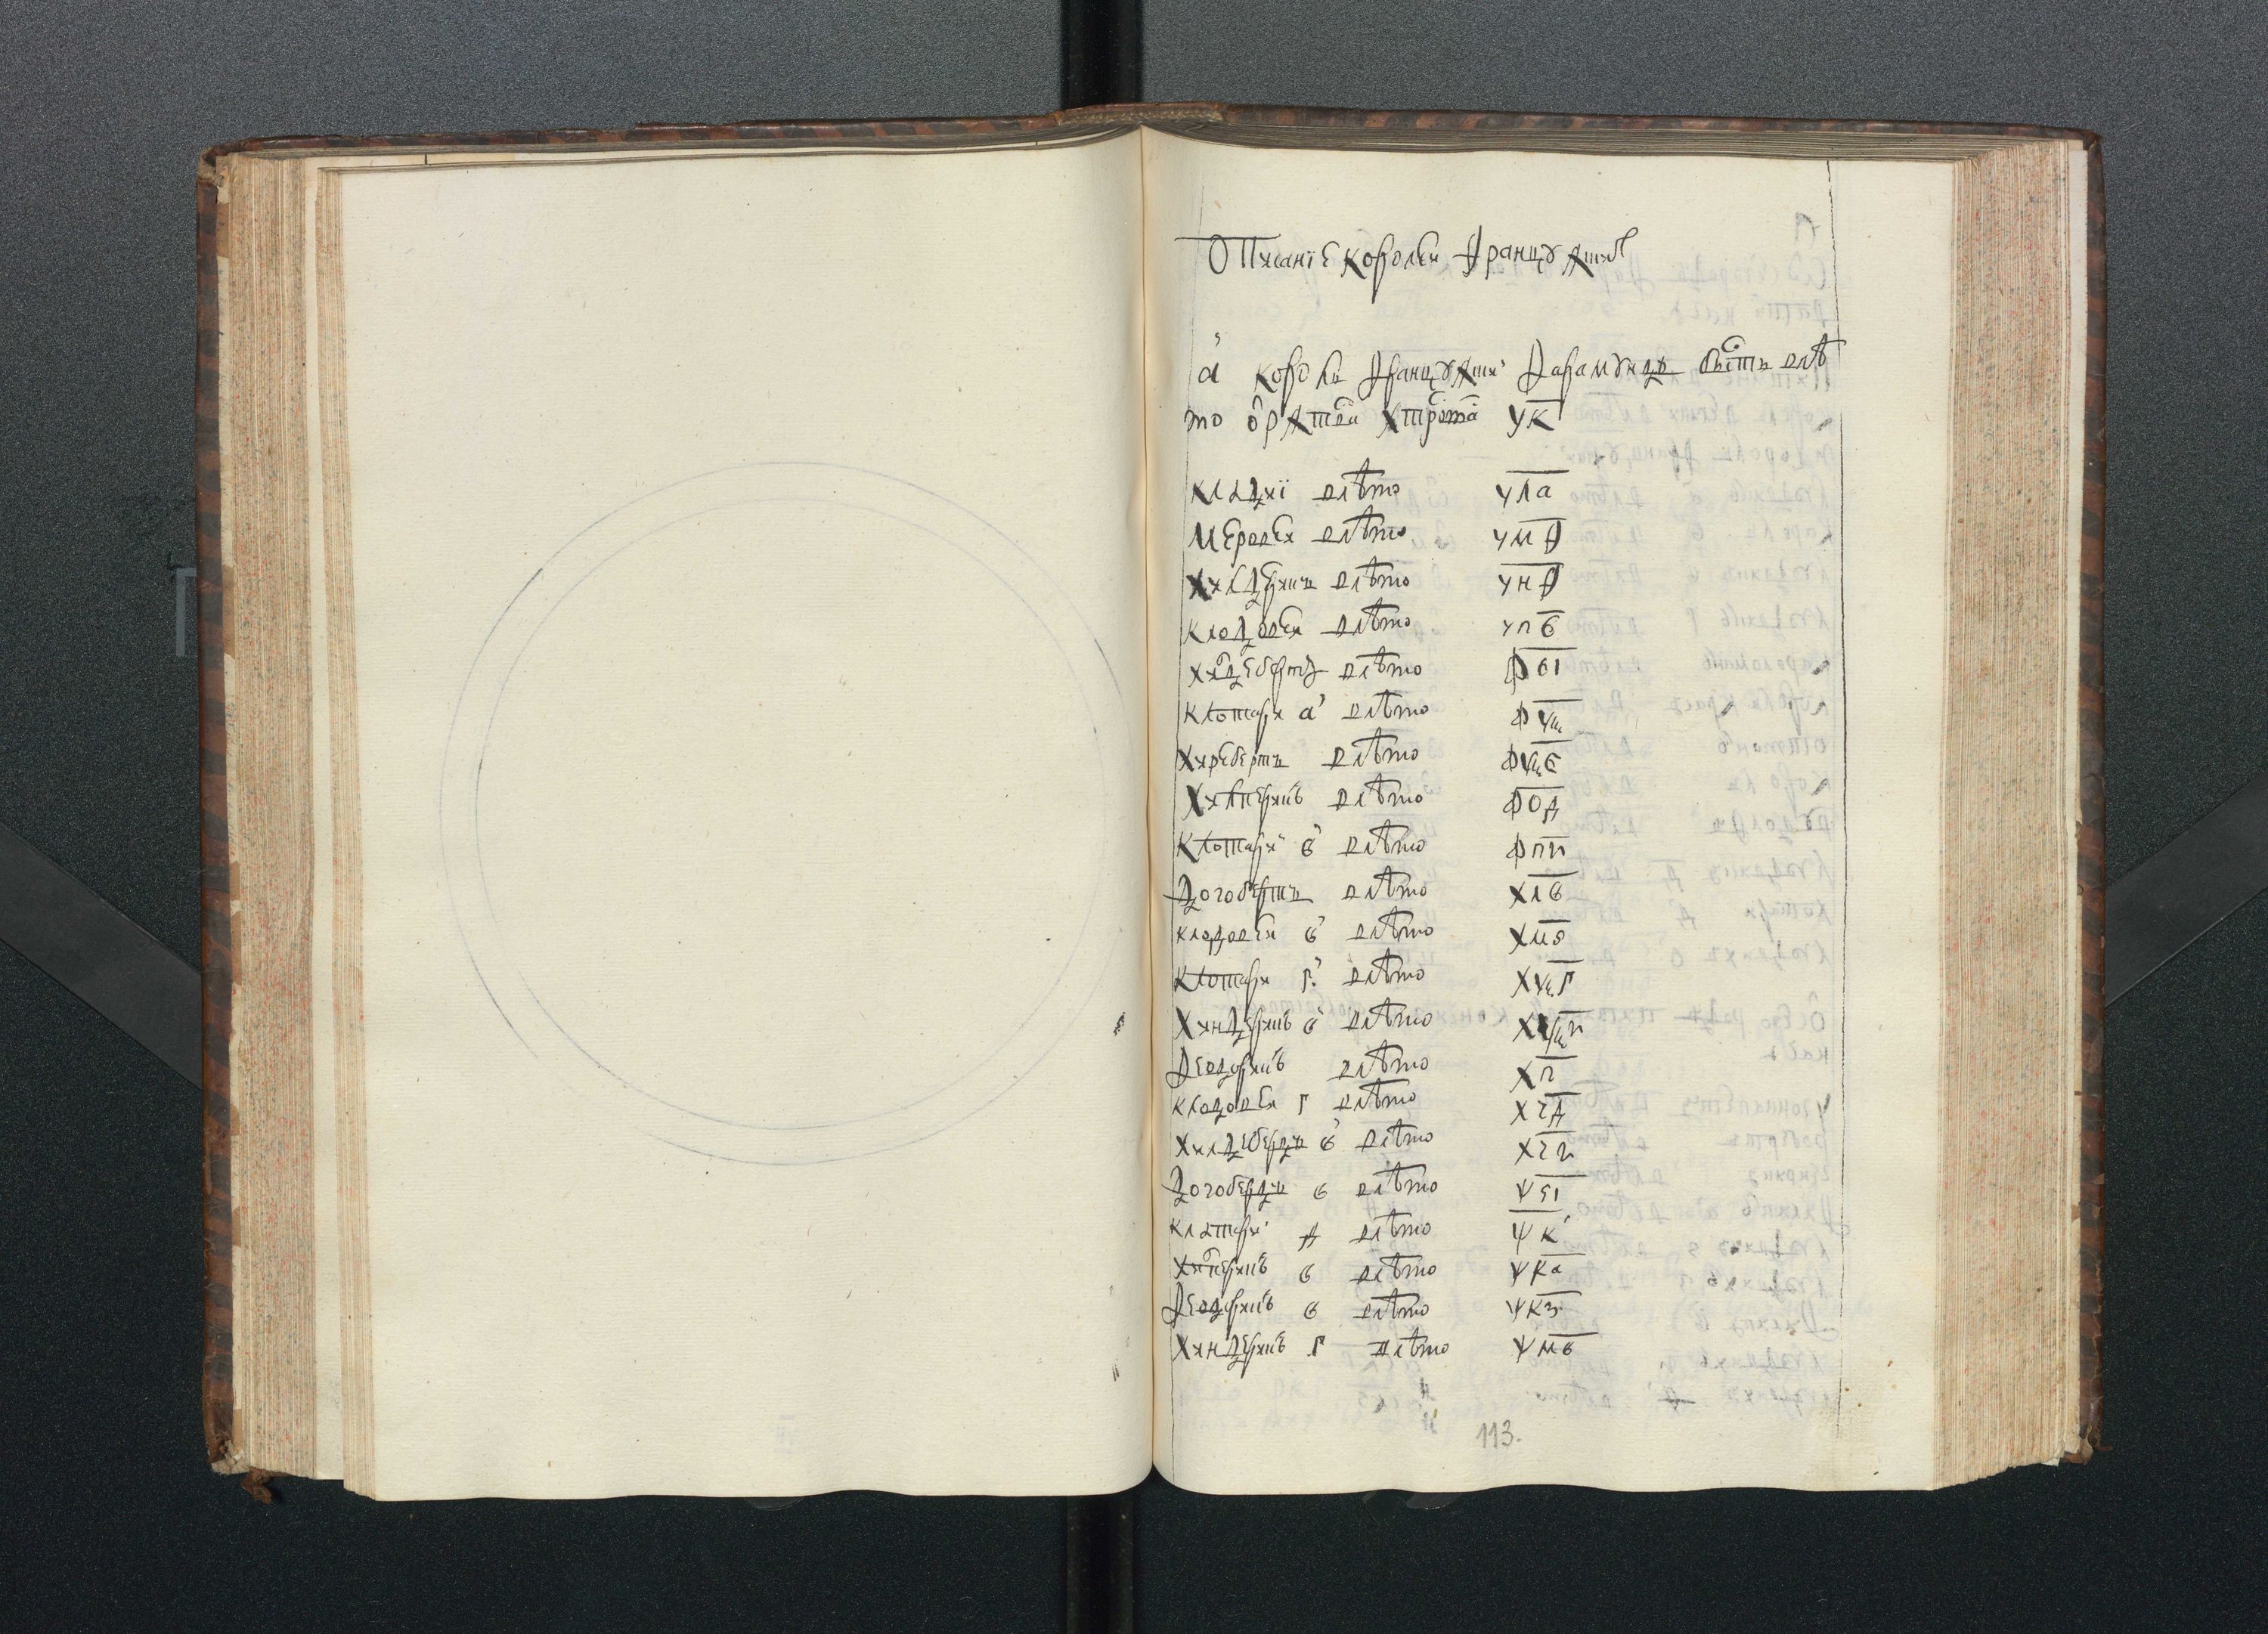 Описанїе королеи Францужских
а҃ король Францужскиї Фарамундъ бысть в лѣ
то ѿ ржства хрⷭта у҃к
Клѡдиї в лѣто ула
Меровеи в лѣто умѳ
Хилдерикъ в лѣто унѳ
Клодовеи в лѣто упв
Хилдебертъ в лѣто фві
Клотари а҃ в лѣто
Хиребертъ в лѣто
Хилперикъ в лѣто фод
Клотари в҃ в лѣто фпи
Догобертъ в лѣто хлв
Клодовеи в҃ в лѣто хмѕ
Клотари г҃ в лѣто
Хилдерикъ в҃ в лѣто
Ѳеодорикъ в лѣто хп
Клодовеи г в лѣто хчд
Хилдебердъ в҃ в лѣто хчи
Догобердъ в в лѣто ѱѕі
Клѡтари д в лѣто ѱк
Хилперикъ в в лѣто ѱка
Ѳеодорикъ в в лѣто ѱкз
Хиндерикъ г в лѣто ѱмв
113.